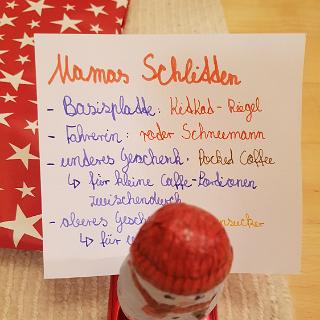 Mamas Schlidden
- Basisplatte: Kitkad-Riegel
- Fahrerin: roder Schneemann
- underes Geschenk. Pocked Coffee
↳ für kleine Caffe-Portionen
zwischendurch
- oberes
↳ für